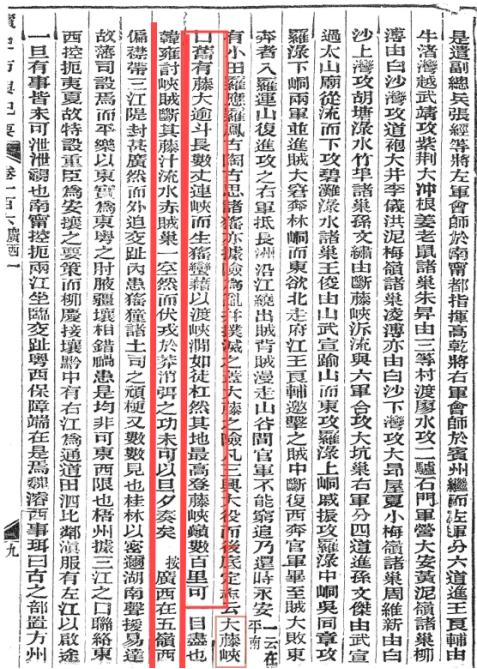 是遣副總兵張經等將左軍會師於南甯都指揮高乾將右軍會師於賓州繼而左軍分六道進王良輔由
牛渚灣越武靖攻紫荆大冲根姜老鼠諸巢朱昇由三等村渡廖水攻二驢石門軍營大安黃泥嶺諸巢柳
溥由白沙灣攻道袍大井李儀洪泥梅嶺諸巢凌溥亦由白沙下灣攻大昻屋夏小梅嶺諸巢周維新由白
沙上灣攻胡塘淥水竹埠諸巢孫文繡由斷藤峽泝流與六軍合攻大坑巢右軍分四道進孫文傑由武宣
過太山廟從流而下攻碧灘淥水諸巢王俊由山武宣踰山而東攻羅淥上峒戚振攻羅淥中峒吳同章攻
羅淥下峒兩軍並進賊大窘奔林峒而東欲北走府江王良輔邀擊之賊中斷復西奔官軍畢至賊大敗東
奔者入羅運山復進攻之右軍抵長洲沿江繞出賊背賊漫走山谷間官軍不能窮追乃還時永安一云在平南
有小田羅應羅鳳古陶古思諸猺亦據險為亂并撲滅之蓋大藤之險凡三興大役而後底定志云大藤峽
口舊有藤大逾斗長數丈連峽而生猺蠻藉以渡峽澗如徒杠然其地最高登藤峽巔數百里可目盡也
韓雍討峽賊斷其藤汁流水赤賊巢一空然而伏戎於莽消弭之功未可以旦夕奏矣 按廣西在五嶺西
偏襟帶三江隄封甚廣然而外迫交趾內患猺獞諸土司之頑梗又數數見也桂林以密邇湖南聲援易達
故藩司設焉而平樂以東實為東粤之肘腋疆壤相錯禍患是均非可東西限也梧州據三江之口聯絡東
西控扼夷夏故特設重臣為安攘之要策而柳慶接壤黔中有右江為通道田泗比鄰滇服有左江以啟途
一旦有事皆未可泄泄視也南甯控扼兩江坐臨交趾粤西保障端在是焉魏濬西事珥曰古之部置方州
讀史方輿紀要 卷一百六 廣西一 九